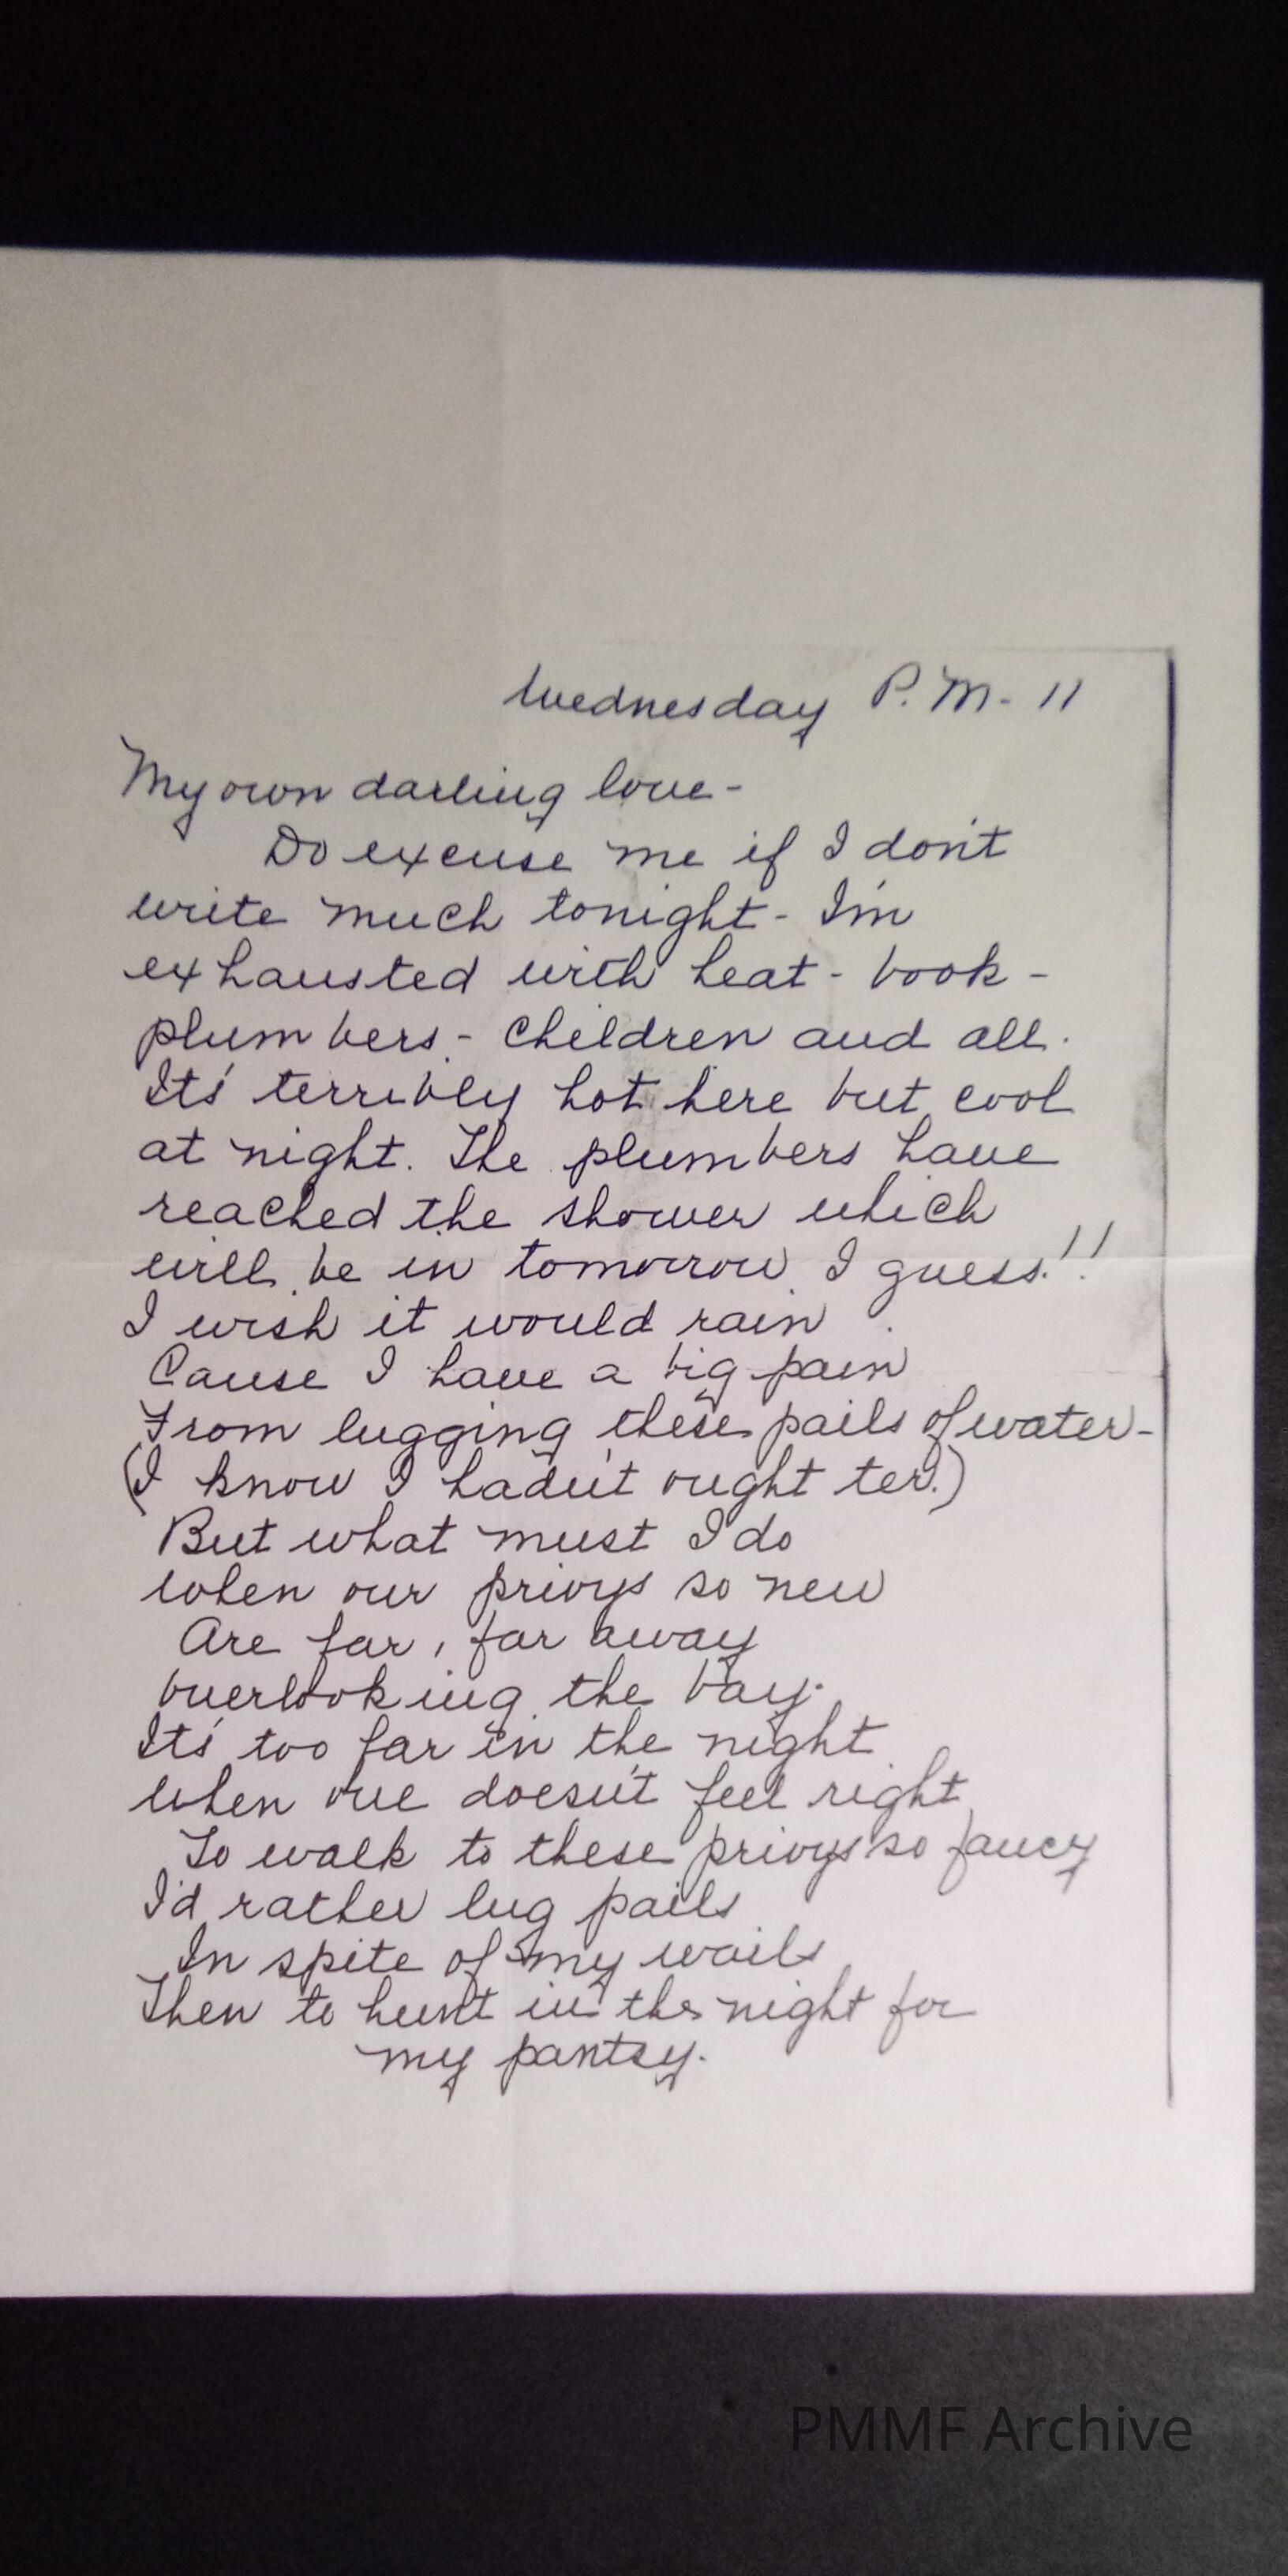 Wednesday P.M- 11
My own darling love-
Do excuse me if I don't
write much tonight- I'm
exhausted with heat- book-
plumbers- children and all.
It's terribly hot here but cool
at night. The plumbers have
reached the shower which
will be in tomorrow I guess!!
I wish it would rain
Cause I have a big pain
From lugging these pails of water-
(I know I hadn't ought ter.)
But what must I do
when our privys so new
Are far, far away
overlooking the bay.
It's too far in the night
when one doesn't feel right
To walk to these privys so fancy
I'd rather lug pails
In spite of my wails
Then to hunt in the night for
my pantsy.
PMMF Archive